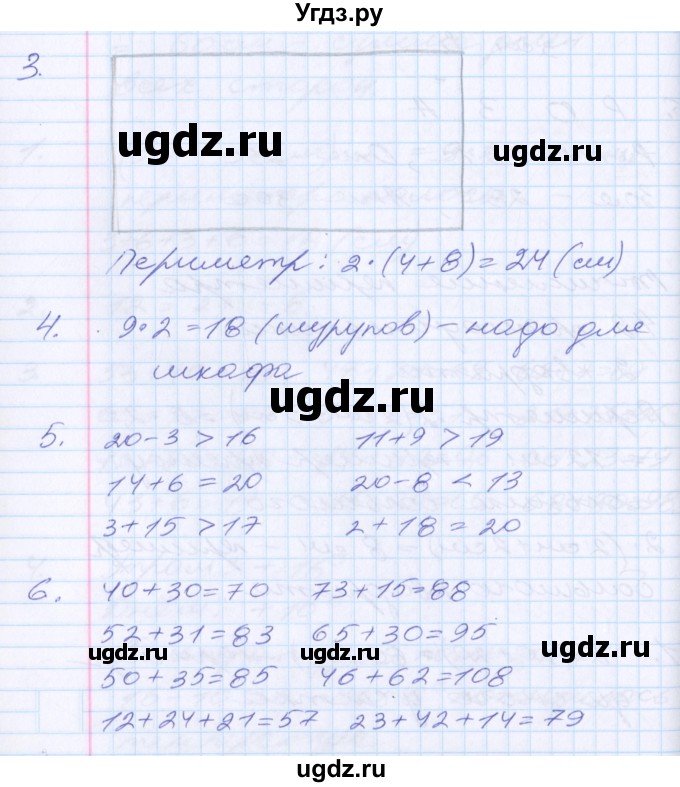 Угдз.ру
3.
ugdz.ru
ugdz.ru
Периметр: 2·(4+8)=24(см)
4. 9·2=18 (шурупов) – надо для
шкафа
ugdz.ru
5. 20-3>16 11+9>19
14+6=20 20-8<13
3+15>17 2+18=20
6. 40+30=70 73+15=88
52+31=83 65+30=95
ugdz.ru ugdz.ru ugdz.ru
50+35=85 46+62=108
12+24+21=57 23+42+14=79
ugdz.ru